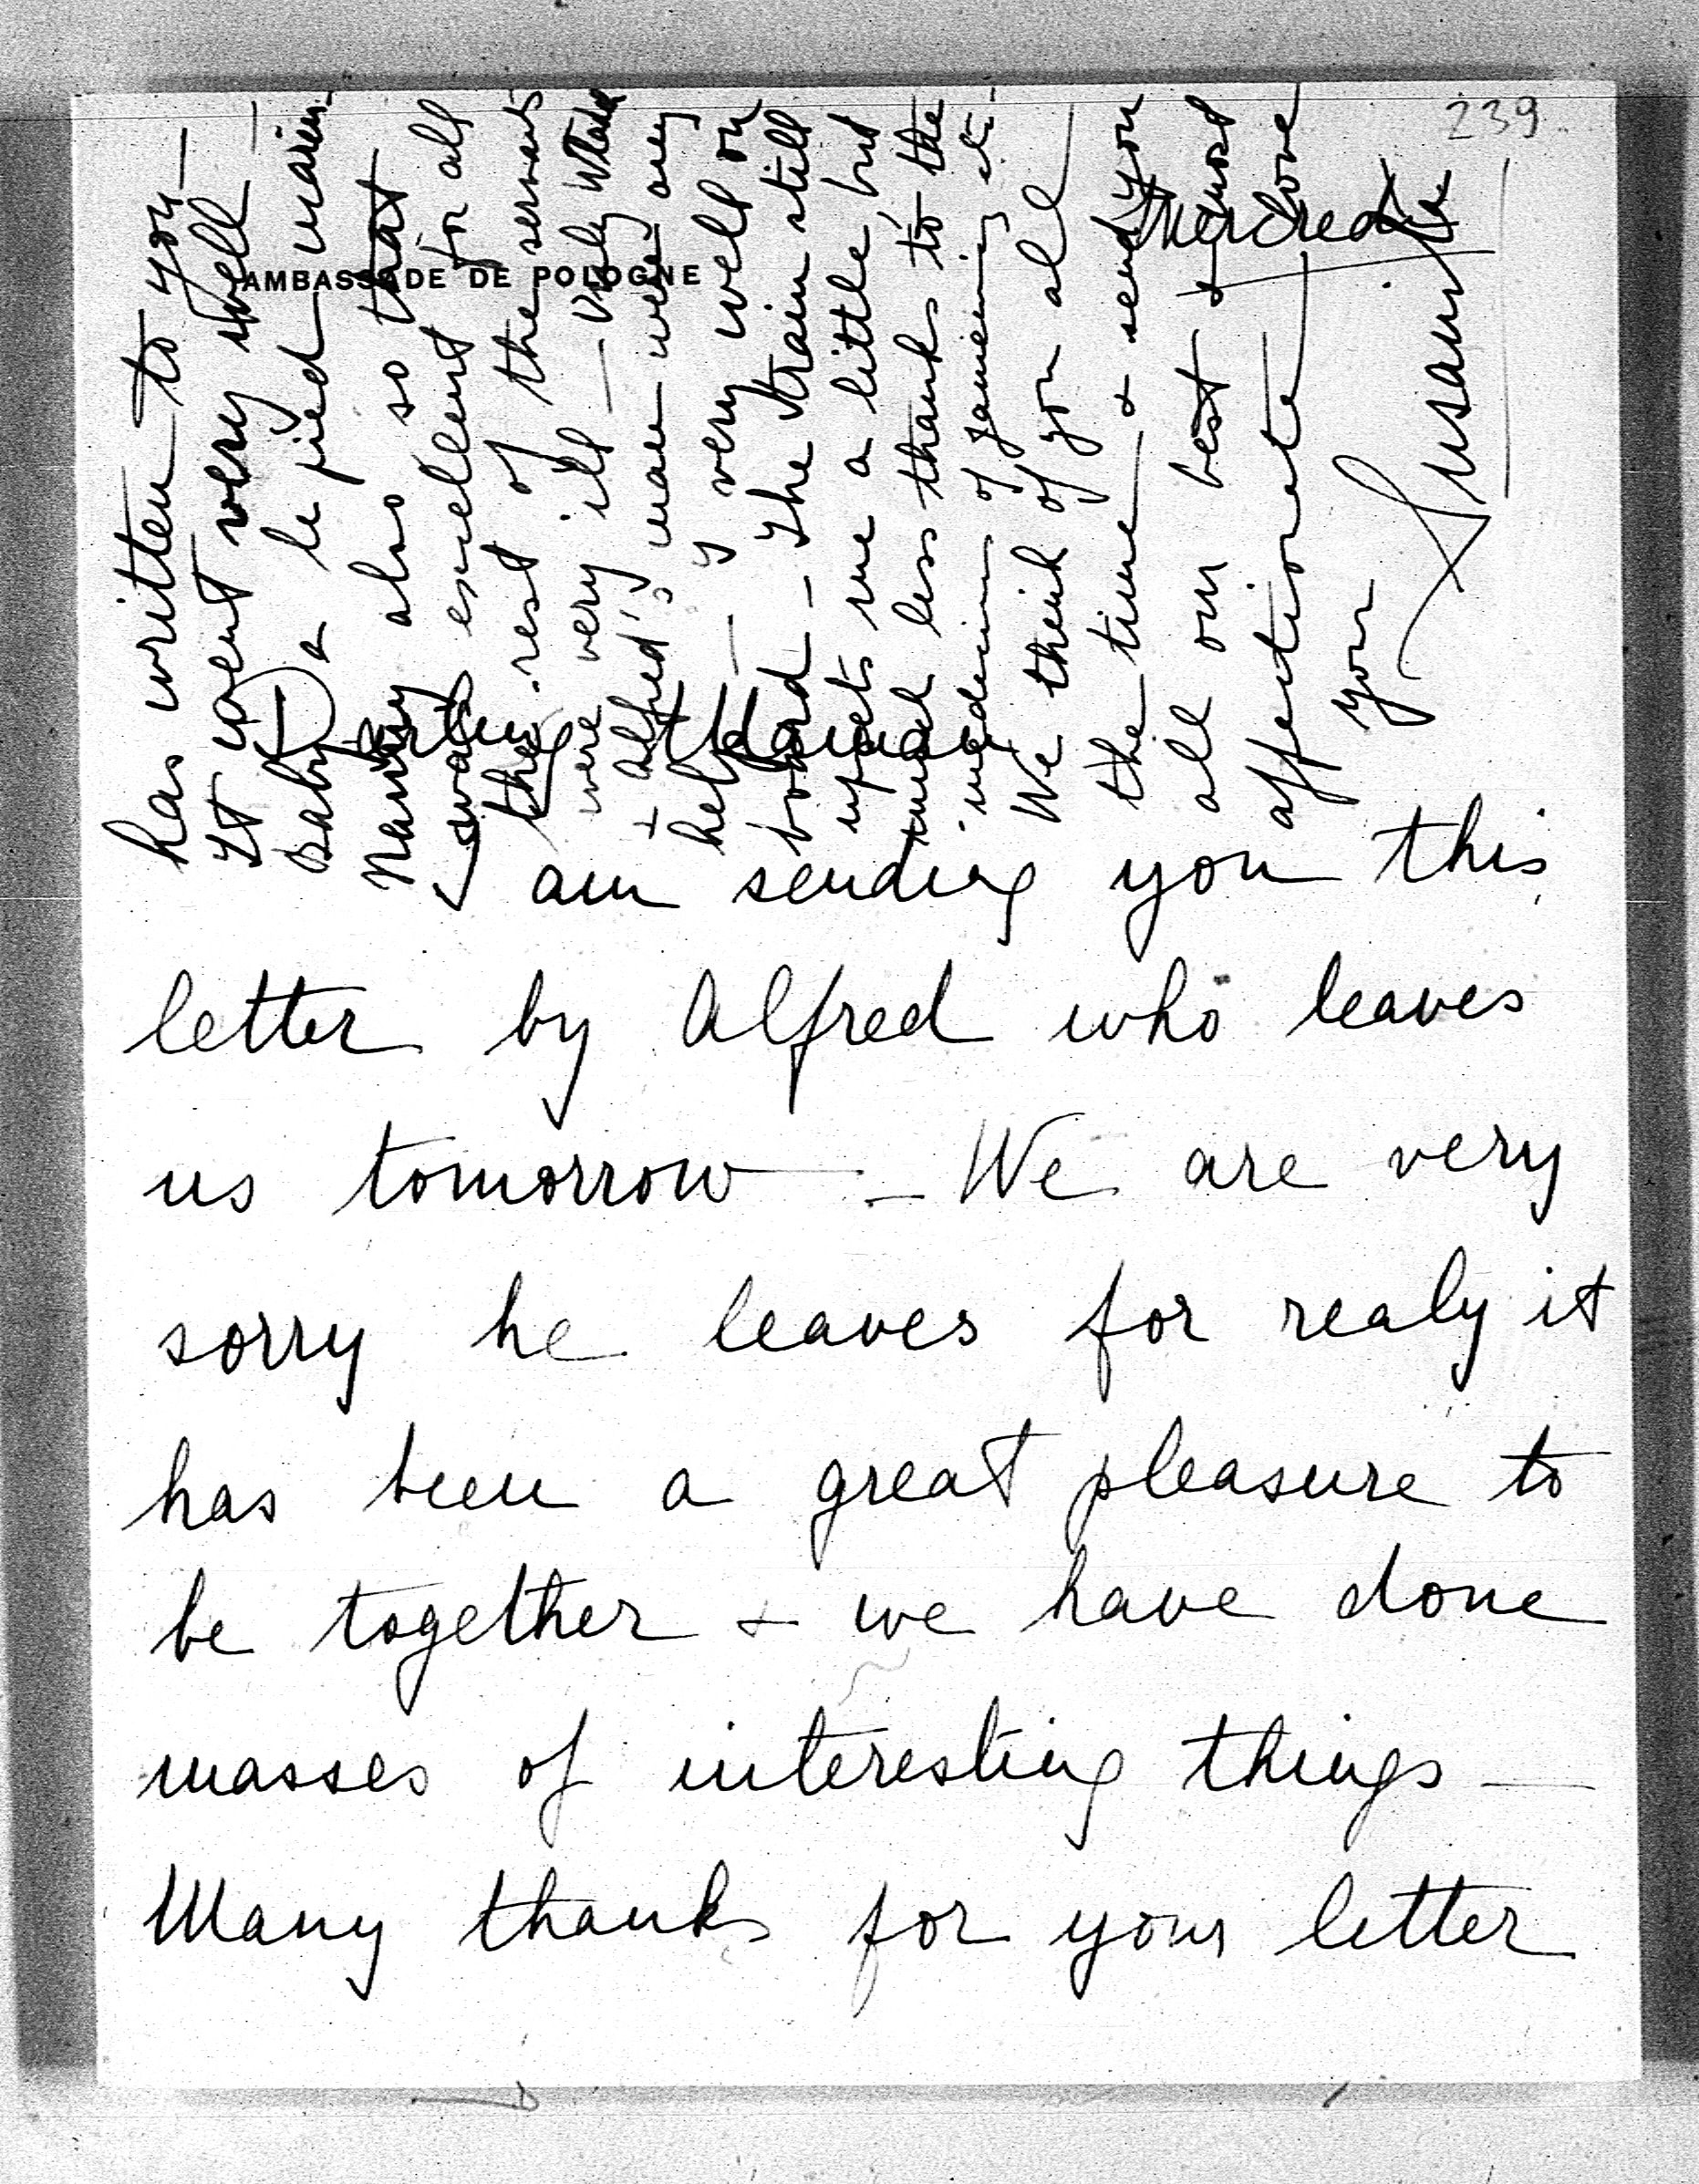 239
Mercredi
AMBASSADE DE POLOGNE
Darling Maman
I am sending you this
letter by Alfred who leaves
us tomorrow — We are very
sorry he leaves for realy it
has been a great pleasure to
be together + we have done
masses of interesting things —
Many thanks for your letter
has written to you —
It went very well —
Baby a le pied marin
Nanny also so that
was excellent for all
the rest of the servants
were very ill — Vely
+ Alfred's man were any
help — I very well on
board — The train still
upsets me a little but
much less thanks to the
medecin of
We think of you all
the time + send you
all our best + most
affectionate love
your
Susaunia